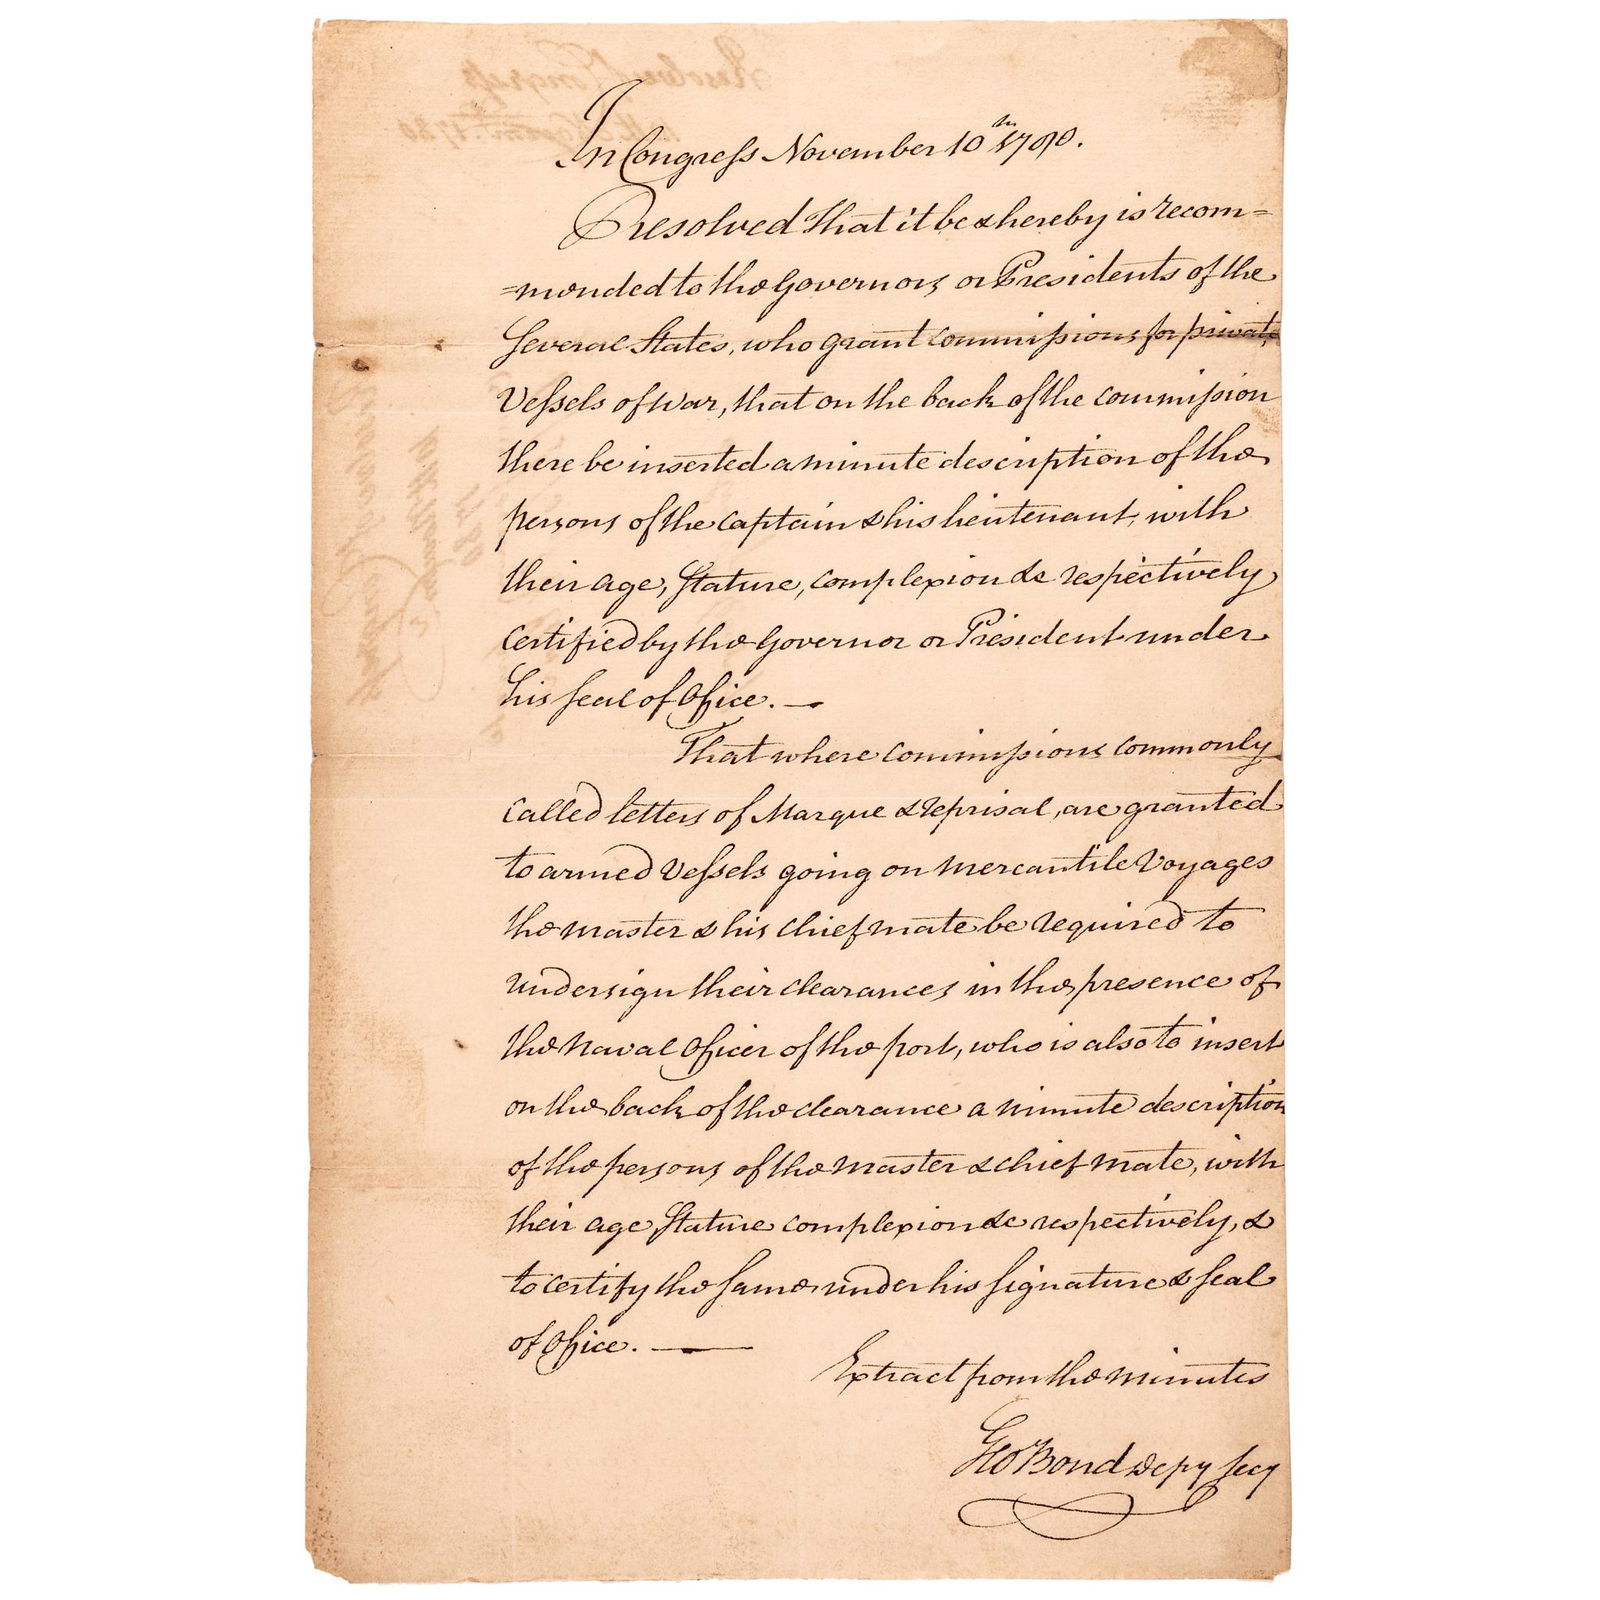 In Congress November 10th 1780.
Resolved that it be & hereby is recom=
=mended to the Governors or Presidents of the
Several States, who grant commissions for private
Vessels of war, that on the back of the commission
there be inserted a minute description of the
persons of the captain & his lieutenant, with
their age, Stature, complexion &c respectively
certified by the Governor or President under
his seal of Office. —
That where commissions commonly
called letters of Marque & reprisal, are granted
to armed Vessels going on mercantile Voyages
the master & his chief mate be required to
undersign their clearances in the presence of
the Naval Officer of the port, who is also to insert
on the back of the clearance a minute description
of the persons of the master & chief mate, with
their age Stature complexion &c respectively, &
to certify the same under his signature & seal
of Office. —
Extract from the minutes
Geo Bond Depy Secy